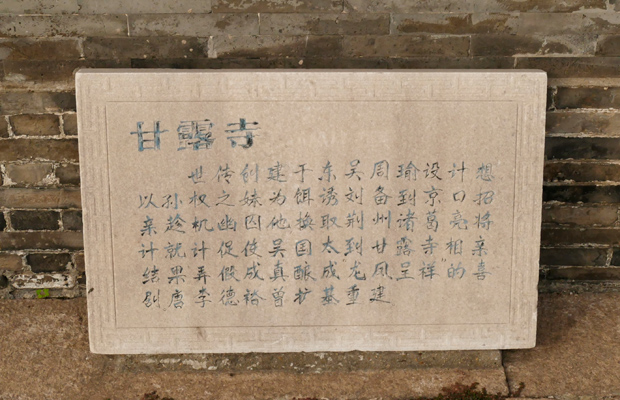 甘露寺
世传创建于东吴周瑜设计想
以孙权之妹为饵诱刘备到京口招
亲趁机幽囚他换取荆州诸葛亮将
计就计促使吴国太到甘露寺相亲
结果弄假成真酿成龙凤呈祥"的喜
剧唐李德裕曾扩基重建